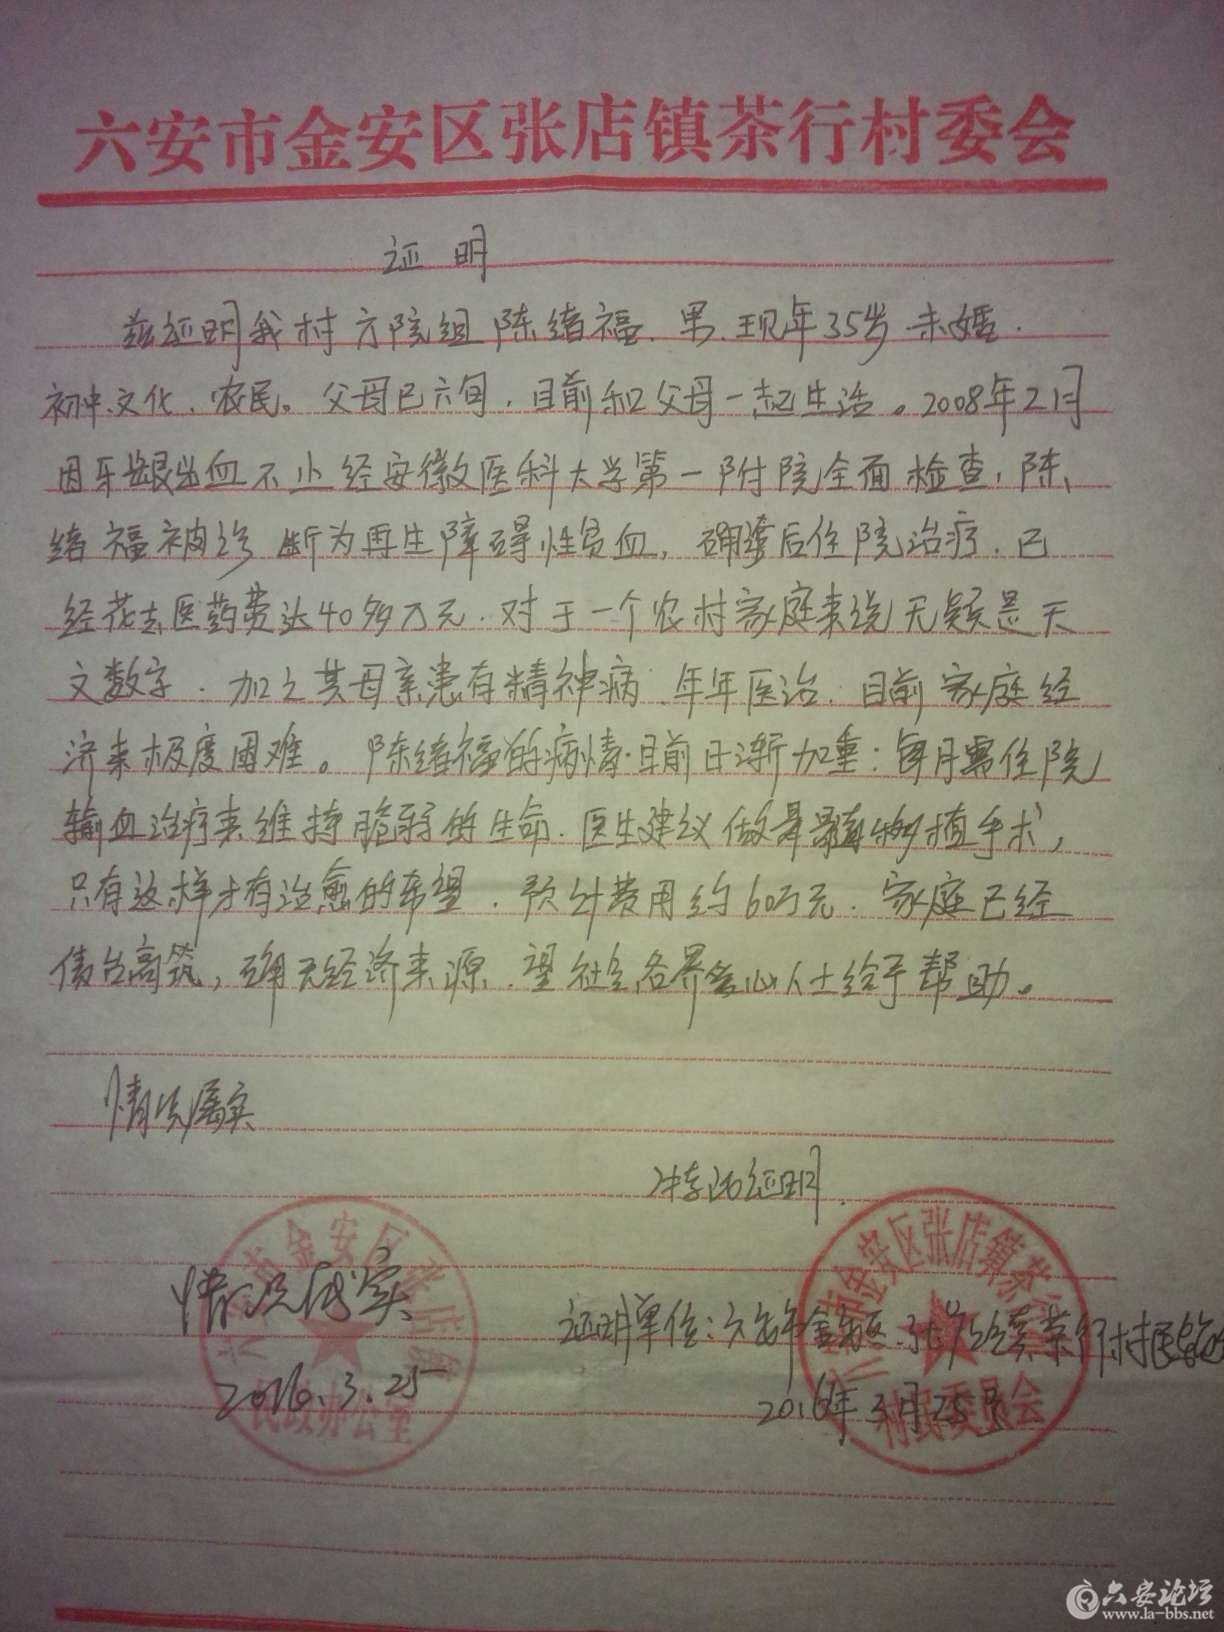 六安市金安区张店镇茶行村委会
证明
兹证明我村方院组陈绪福、男、现年35岁 未婚、
初中文化、农民。父母已六旬，目前和父母一起生活。2008年2月
因牙龈出血不止经安徽医科大学第一附院全面检查，陈
绪福被诊断为再生障碍性贫血，确诊后住院治疗，已
经花去医药费达40多万元，对于一个农村家庭来说无疑是天
文数字，加之其母亲患有精神病，年年医治，目前家庭经
济来极度困难。陈绪福的病情目前日渐加重：每月需住院
输血治疗来维持脆弱的生命，医生建议做骨髓移植手术，
只有这样才有治愈的希望，预计费用约60万元，家庭已经
债台高筑，确无经济来源，望社会各界爱心人士给予帮助。
情况属实
特此证明
情况属实
2016.3.25
六安市金安区张店镇
民政办公室
证明单位：六安市金安区张店镇茶行村民委
2016年3月25日
六安市金安区张店镇茶行
村民委员会
六安论坛
www.la-bbs.net